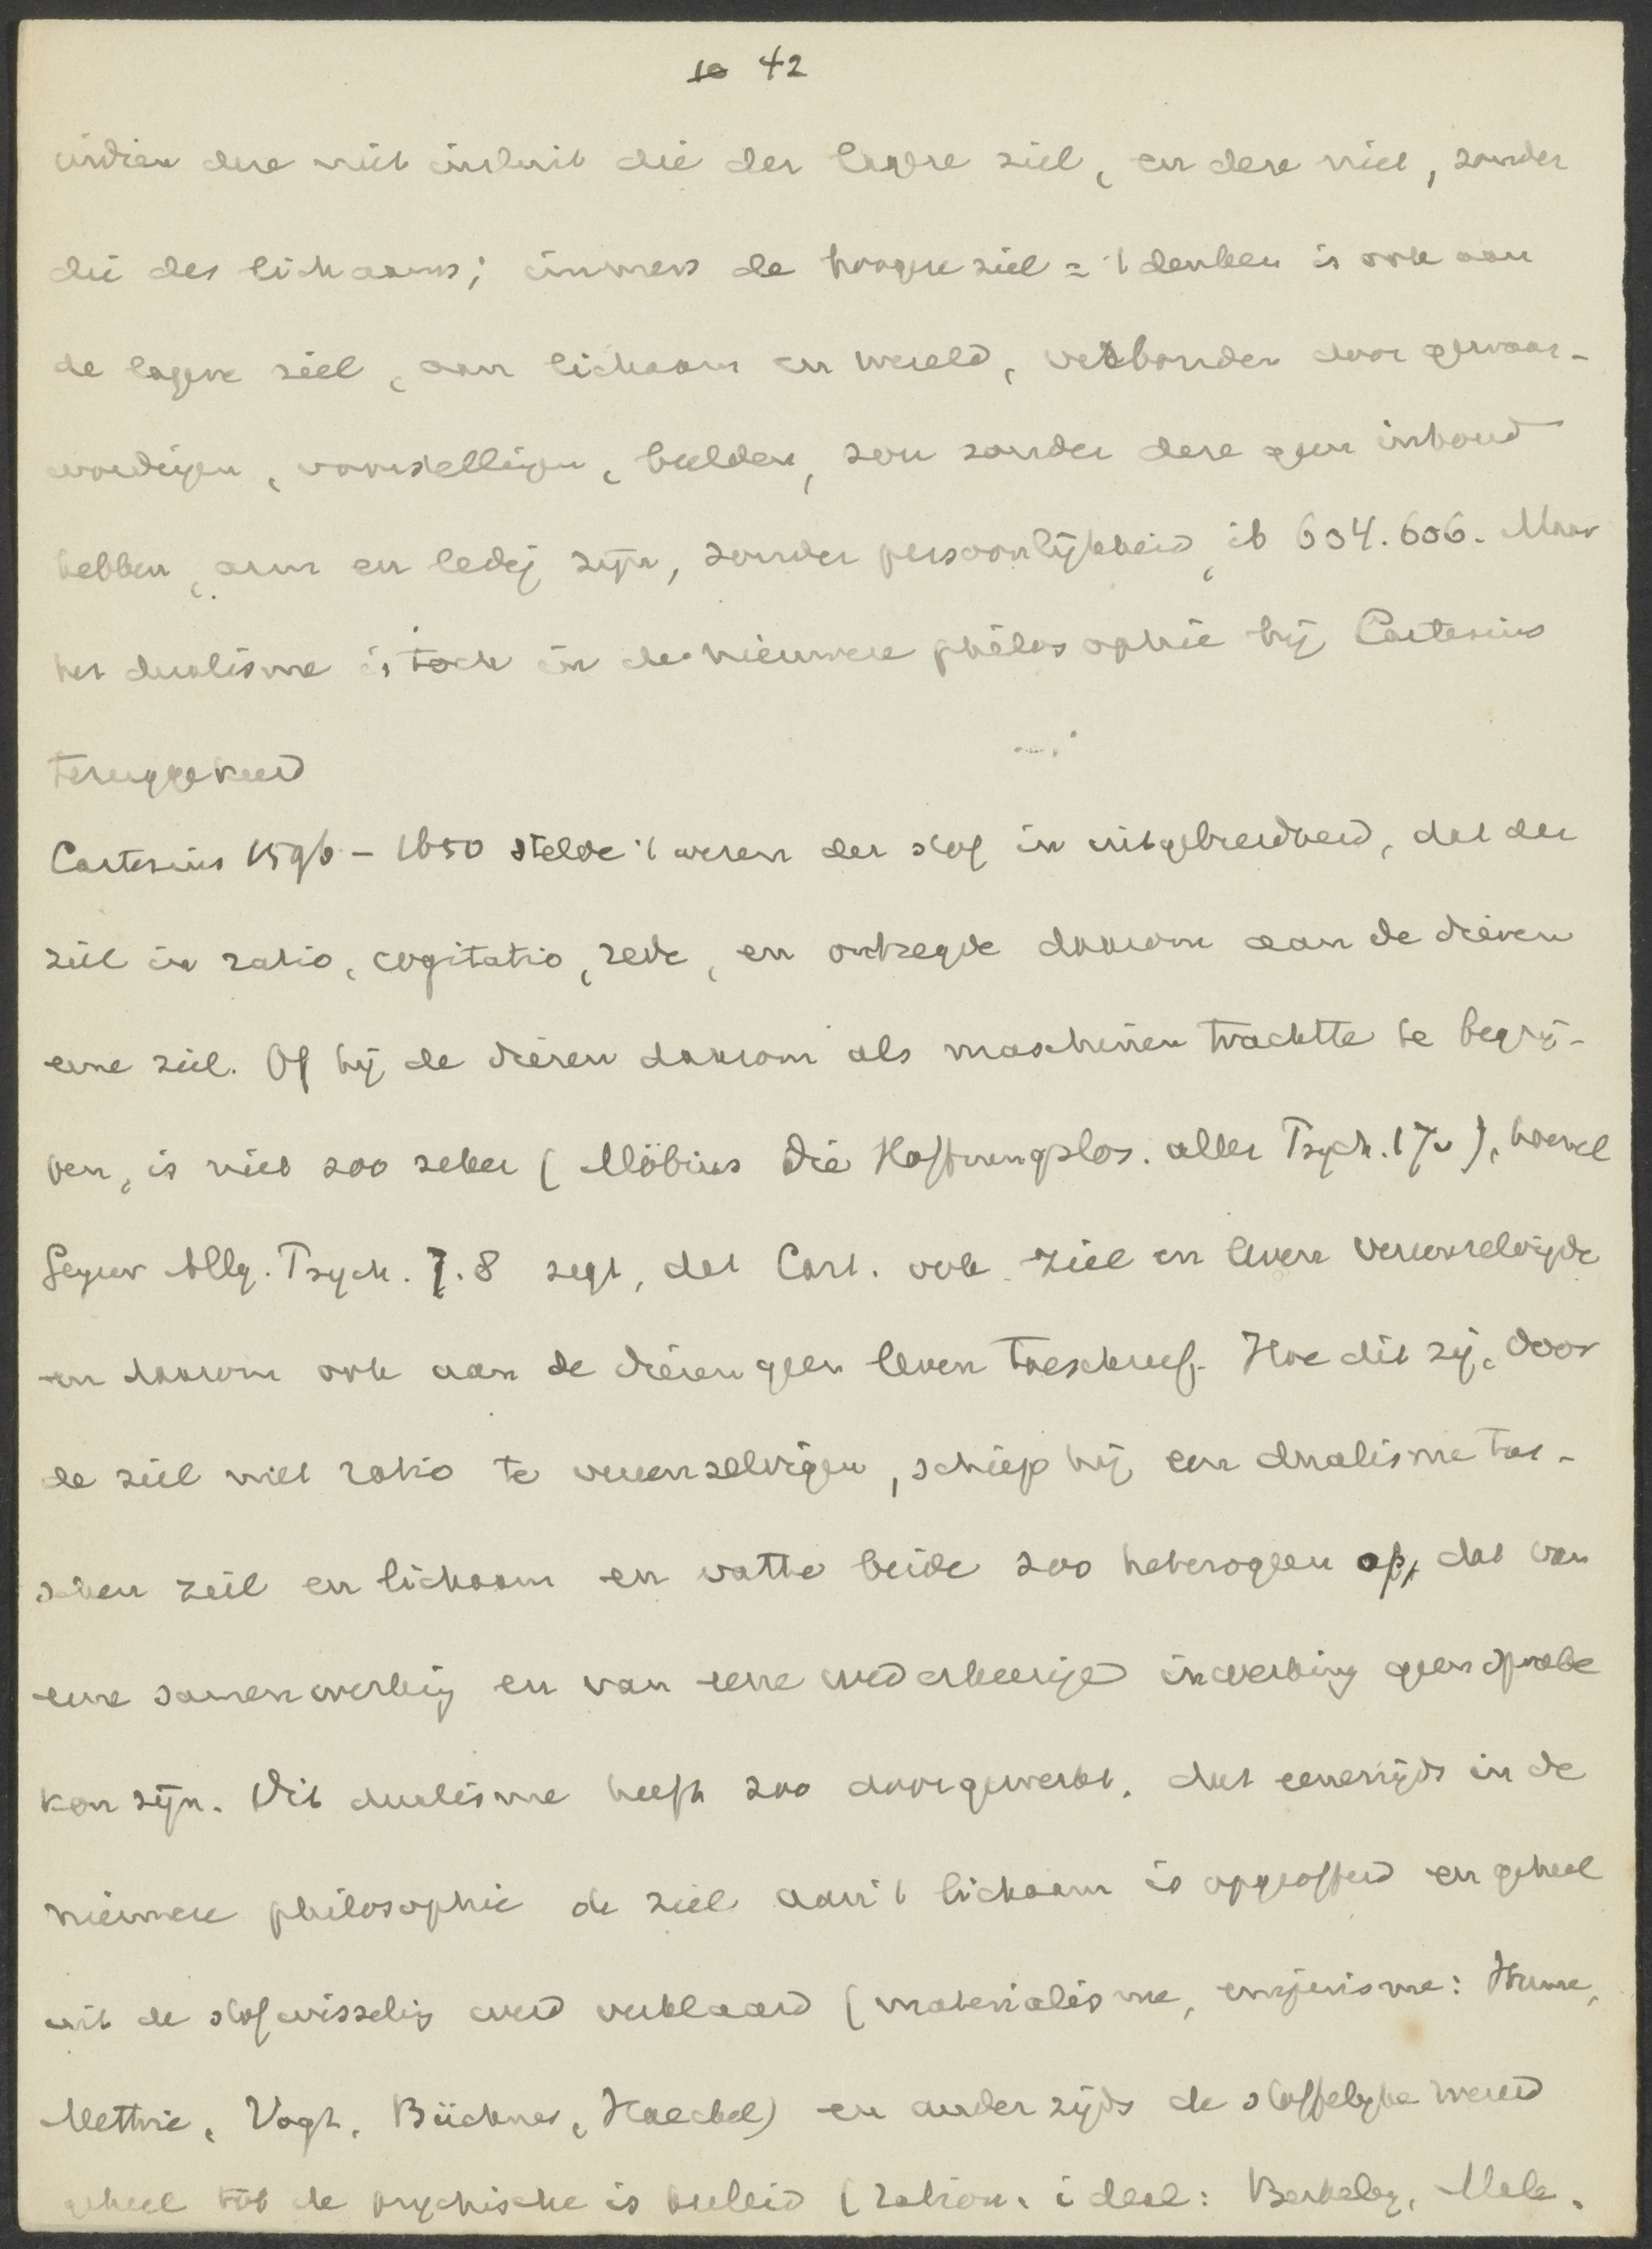 10 42
indien deze niet insluit die der lagere ziel, en deze niet, zonder
die des lichaams; immers de hoogere ziel = 't denken is ook aan
de lagere ziel, aan lichaam en wereld, verbonden door gewaar-
wordingen, voorstellingen, beelden, zou zonder deze geen inhoud
hebben, arm en ledig zijn, zonder persoonlijkheid, ib 604.606. Maar
het dualisme is toch in de nieuwere philosophie bij Cartesius
teruggekeerd
Cartesius 1596 - 1650 stelde 't wezen der stof in uitgebreidheid, dat der
ziel in ratio, cogitatio, rede, en ontzegde daarom aan de dieren
eene ziel. Of hij de dieren daarom als maschinen trachtte te begrij-
pen, is niet zoo zeker (Möbius Die Hoffnungslos. aller Psych. 17v), hoewel
Geyser Allg. Psych. 7.8 zegt, dat Cart. ook ziel en leven vereenzelvigde
en daarom ook aan de dieren geen leven toeschreef. Hoe dit zij, door
de ziel met ratio te vereenzelvigen, schiep hij een dualisme tus-
schen ziel en lichaam en vatte beide zoo heterogeen op, dat van
eene samenwerking en van eene wederkeerige inwerking geen sprake
kon zijn. Dit dualisme heeft zoo doorgewerkt, dat eenerzijds in de
nieuwere philosophie de ziel aan 't lichaam is opgeofferd en geheel
uit de stofwisseling werd verklaard (materialisme, empirisme: Hume,
Mettrie, Vogt, Büchner, Haeckel) en anderzijds de stoffelijke wereld
geheel tot de psychische is herleid (ration. ideal: Berkeley, Male.